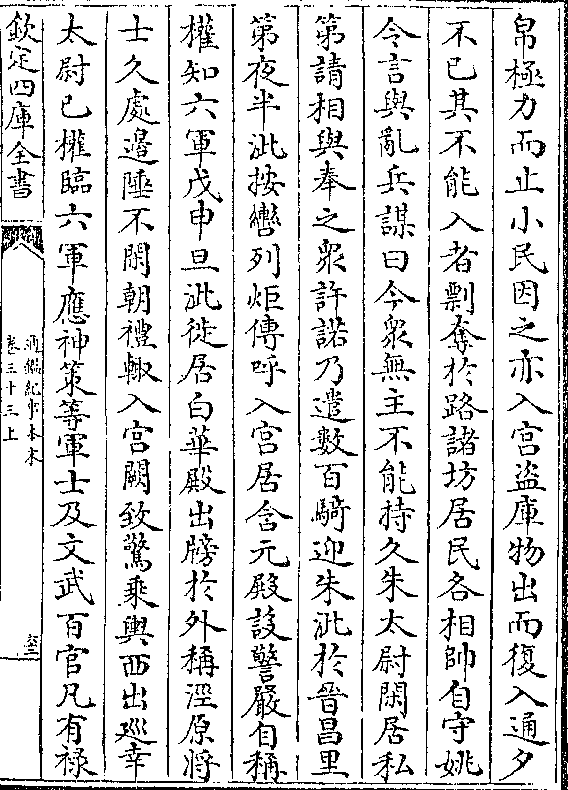 帛極力而止小民因之亦入宮盜庫物出而復入通夕
不已其不能入者剽奪於路諸坊居民各相帥自守姚
令言與亂兵謀曰今衆無主不能持久朱太尉閑居私
第請相與奉之衆許諾乃遣數百騎迎朱泚於晉昌里
第夜半泚按轡列炬傳呼入宮居含元殿設警嚴自稱
權知六軍戊申旦泚徙居白華殿出牓於外稱涇原將
士久處邊陲不閑朝禮輙入宮闕致驚乘輿西出巡幸
太尉已權臨六軍應神策等軍士及文武百官凡有禄
欽定四庫全書
通鑑紀事本末
卷三十三上